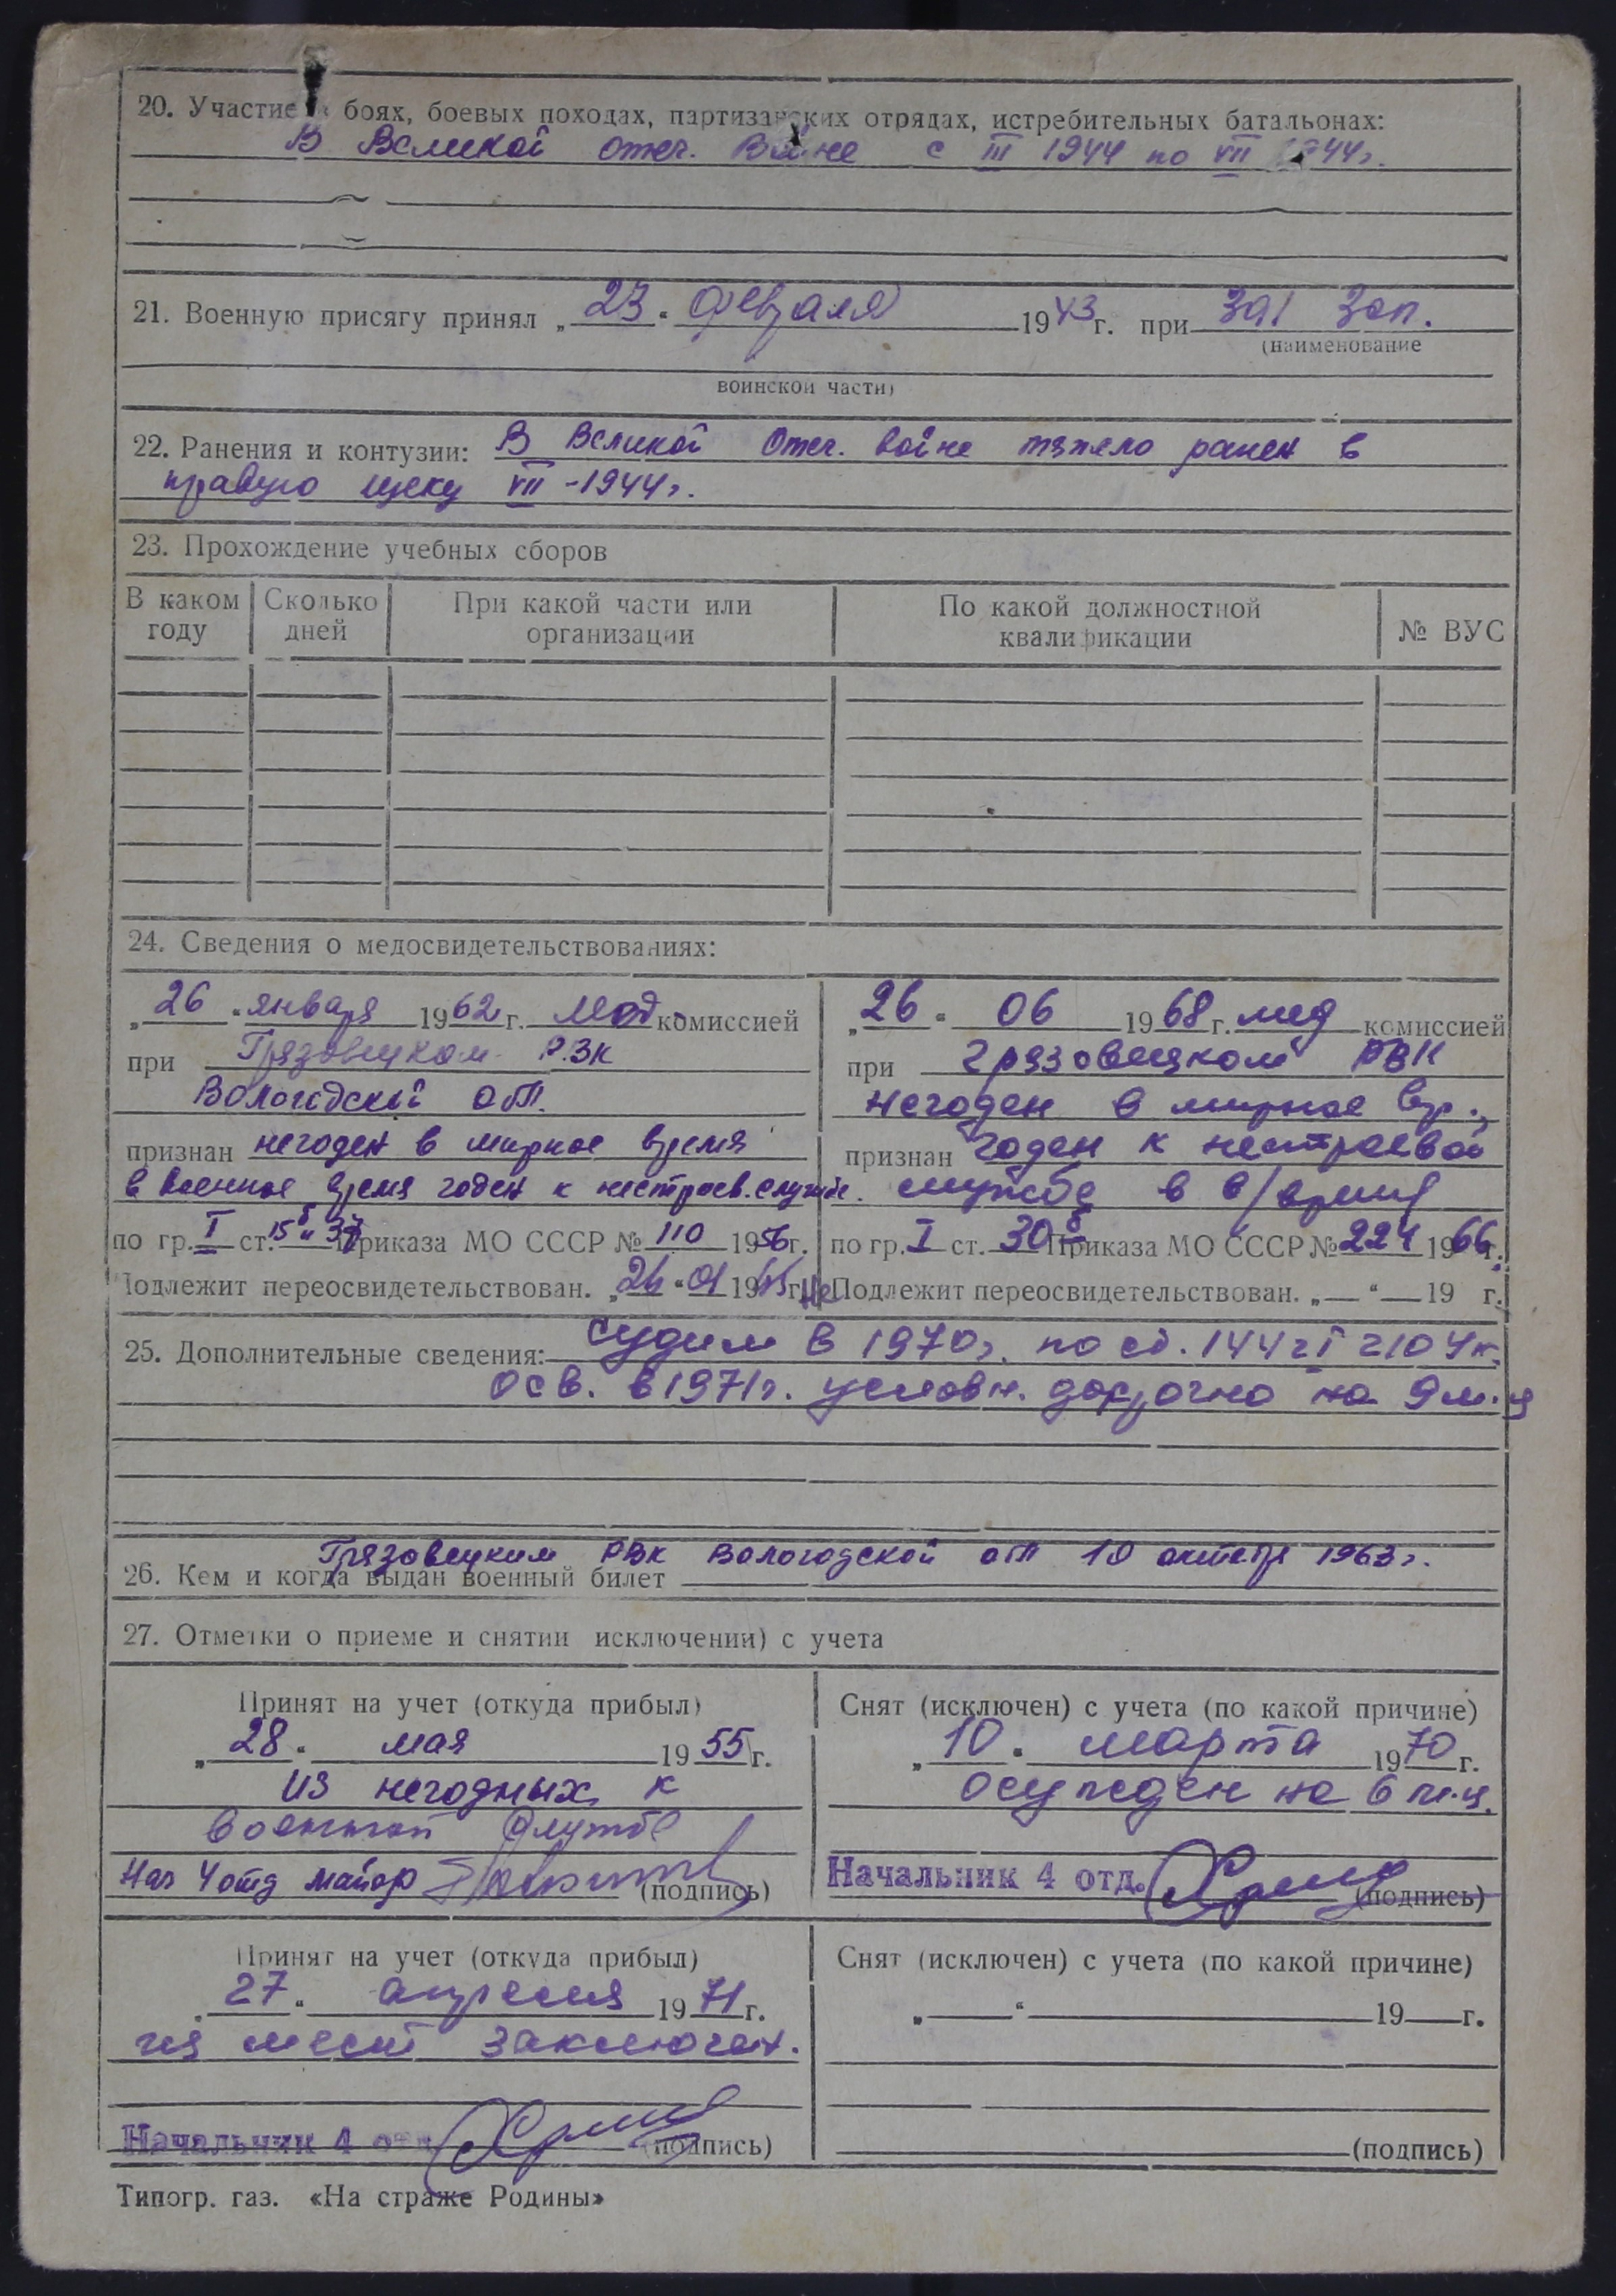 20. Участие в боях, боевых походах, партизанских отрядах, истребительных батальонах:
В Великой отеч. войне с III 1944 по VII 1944г.
21. Военную присягу принял „23“ февраля 1943г. при 391 Зап.
(наименование
воинской части)
22. Ранения и контузии: В Великой Отеч. войне тяжело ранен в
правую щеку VII-1944г.
23. Прохождение учебных сборов
В каком году Сколько дней При какой части или организации По какой должностной квалификации № ВУС
24. Сведения о медосвидетельствованиях:
„26“ января 1962г. Мед комиссией
при Грязовецком РВК
Вологодской обл.
признан негоден в мирное время
в военное время годен к нестроев. службе.
по гр. I ст. 15б и 37 Приказа МО СССР № 110 1956г.
Подлежит переосвидетельствован. „26“ 01 19 г.
„26“ 06 1968г. мед комиссией
при Грязовецком РВК
негоден в мирное вр.,
признан годен к нестроевой
службе в в/время
по гр. I ст. 30б Приказа МО СССР № 224 1966г.
Не Подлежит переосвидетельствован. „—“ — 19 г.
25. Дополнительные сведения: судим в 1970г. по ст. 144 ч I 210 УК.
осв. в 1971г. условн. досрочно на 9 м-ц
26. Кем и когда выдан военный билет Грязовецким РВК Вологодской обл 10 октября 1963г.
27. Отметки о приеме и снятии исключении) с учета
Принят на учет (откуда прибыл)
„28“ мая 1955г.
из негодных к
военной службе
Нач 4 отд майор (подпись)
Снят (исключен) с учета (по какой причине)
„10“ марта 1970г.
осужден на 6 м-ц.
Начальник 4 отд. (подпись)
Принят на учет (откуда прибыл)
„27“ апреля 1971г.
из мест заключен.
Начальник 4 отд (подпись)
Снят (исключен) с учета (по какой причине)
„—“ — 19—г.
(подпись)
Типогр. газ. «На страже Родины»